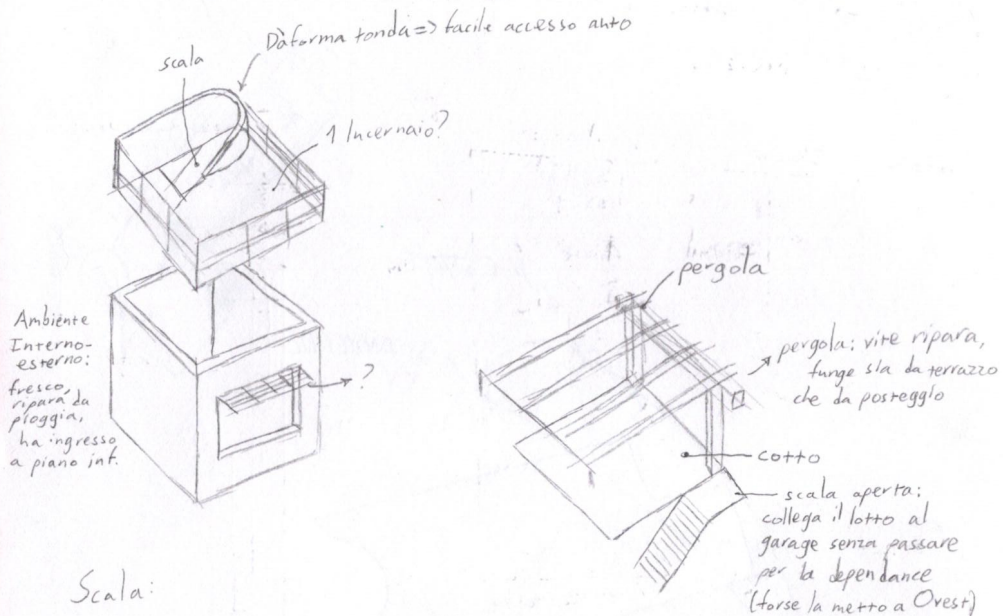 Dà forma tonda => facile accesso auto
scala
1 lucernaio?
pergola
Ambiente
Interno-
esterno:
fresco,
ripara da
pioggia,
ha ingresso
a piano inf.
?
pergola: vite ripara,
funge sia da terrazzo
che da posteggio
cotto
scala aperta:
collega il lotto al
garage senza passare
per la dependance
(forse la metto a Ovest)
Scala: